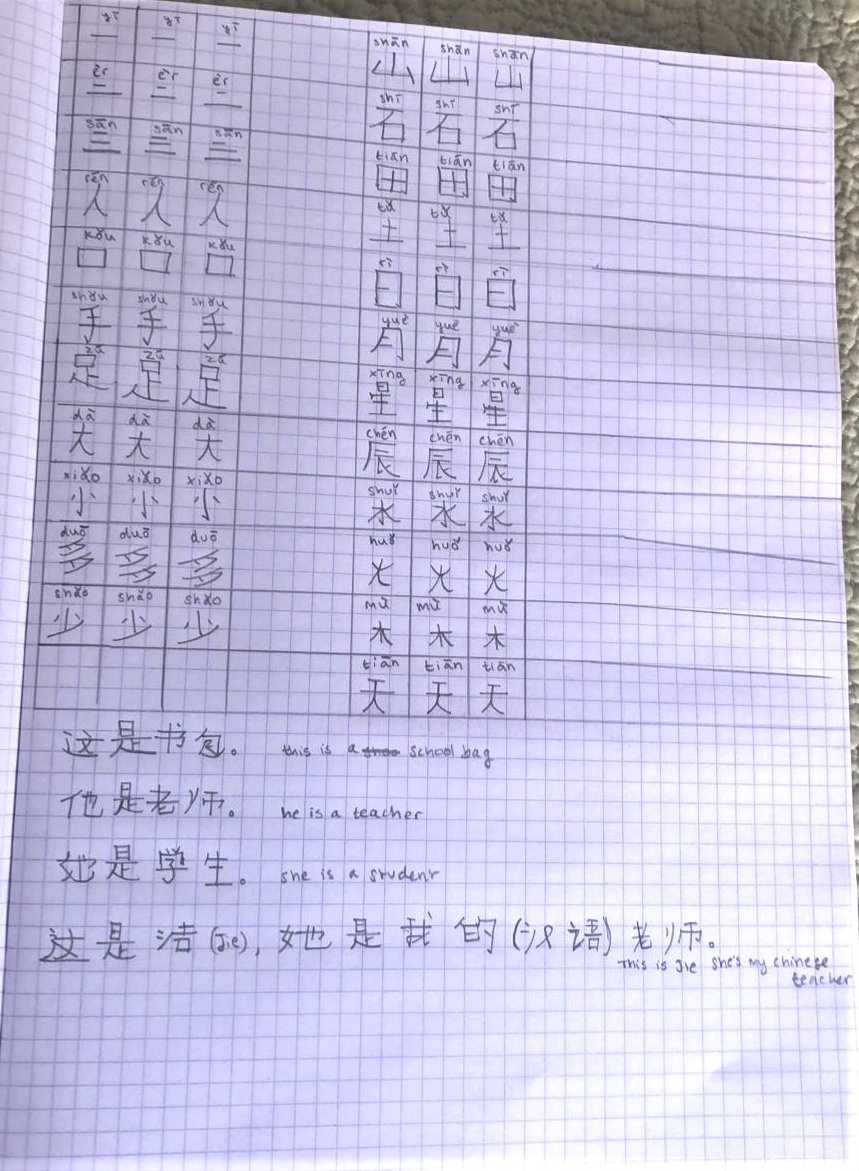 yī yī yī
一 一 一
èr èr èr
二 二 二
sān sān sān
三 三 三
rén rén rén
人 人 人
kǒu kǒu kǒu
口 口 口
shǒu shǒu shǒu
手 手 手
zú zú zú
足 足 足
dà dà dà
大 大 大
xiǎo xiǎo xiǎo
小 小 小
duō duō duō
多 多 多
shǎo shǎo shǎo
少 少 少
shān shān shān
山 山 山
shí shí shí
石 石 石
tián tián tián
田 田 田
tǔ tǔ tǔ
土 土 土
rì rì rì
日 日 日
yuè yuè yuè
月 月 月
xīng xīng xīng
星 星 星
chén chén chén
辰 辰 辰
shuǐ shuǐ shuǐ
水 水 水
huǒ huǒ huǒ
火 火 火
mù mù mù
木 木 木
tiān tiān tiān
天 天 天
这是书包。 this is a school bag
他是老师。 he is a teacher
她是学生。 she is a student
这是洁(Jie), 她是我的(汉语)老师。
This is Jie she's my chinese
teacher